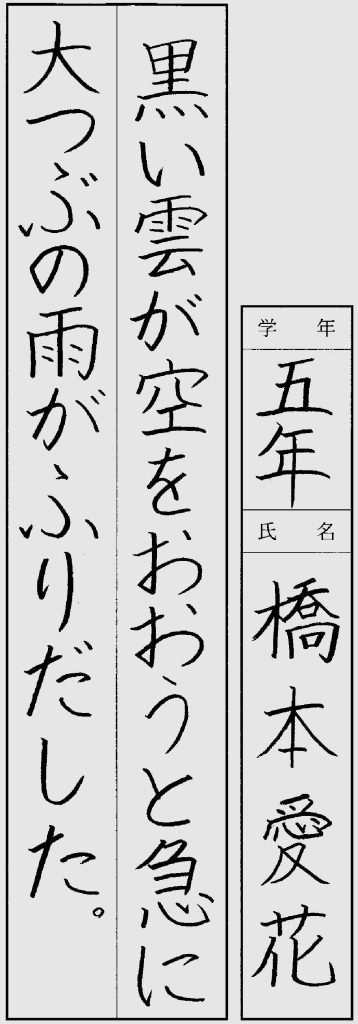 学年
五年
氏名
橋本愛花
黒い雲が空をおおうと急に
大つぶの雨がふりだした。